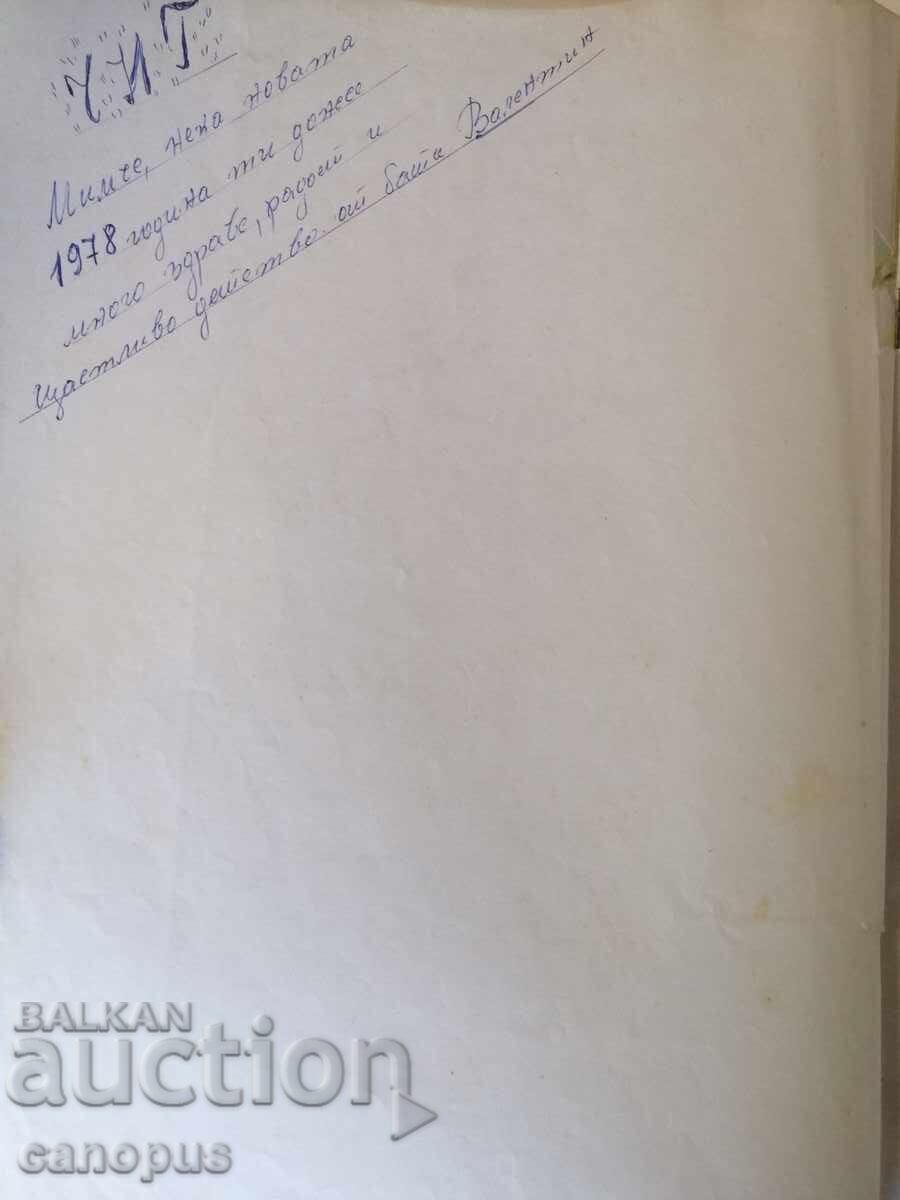 ЧНГ
Мимче, нека новата
1978 година ти донесе
много здраве, радост и
щастливо детство. от бати Валентин
BALKAN
auction
canopus